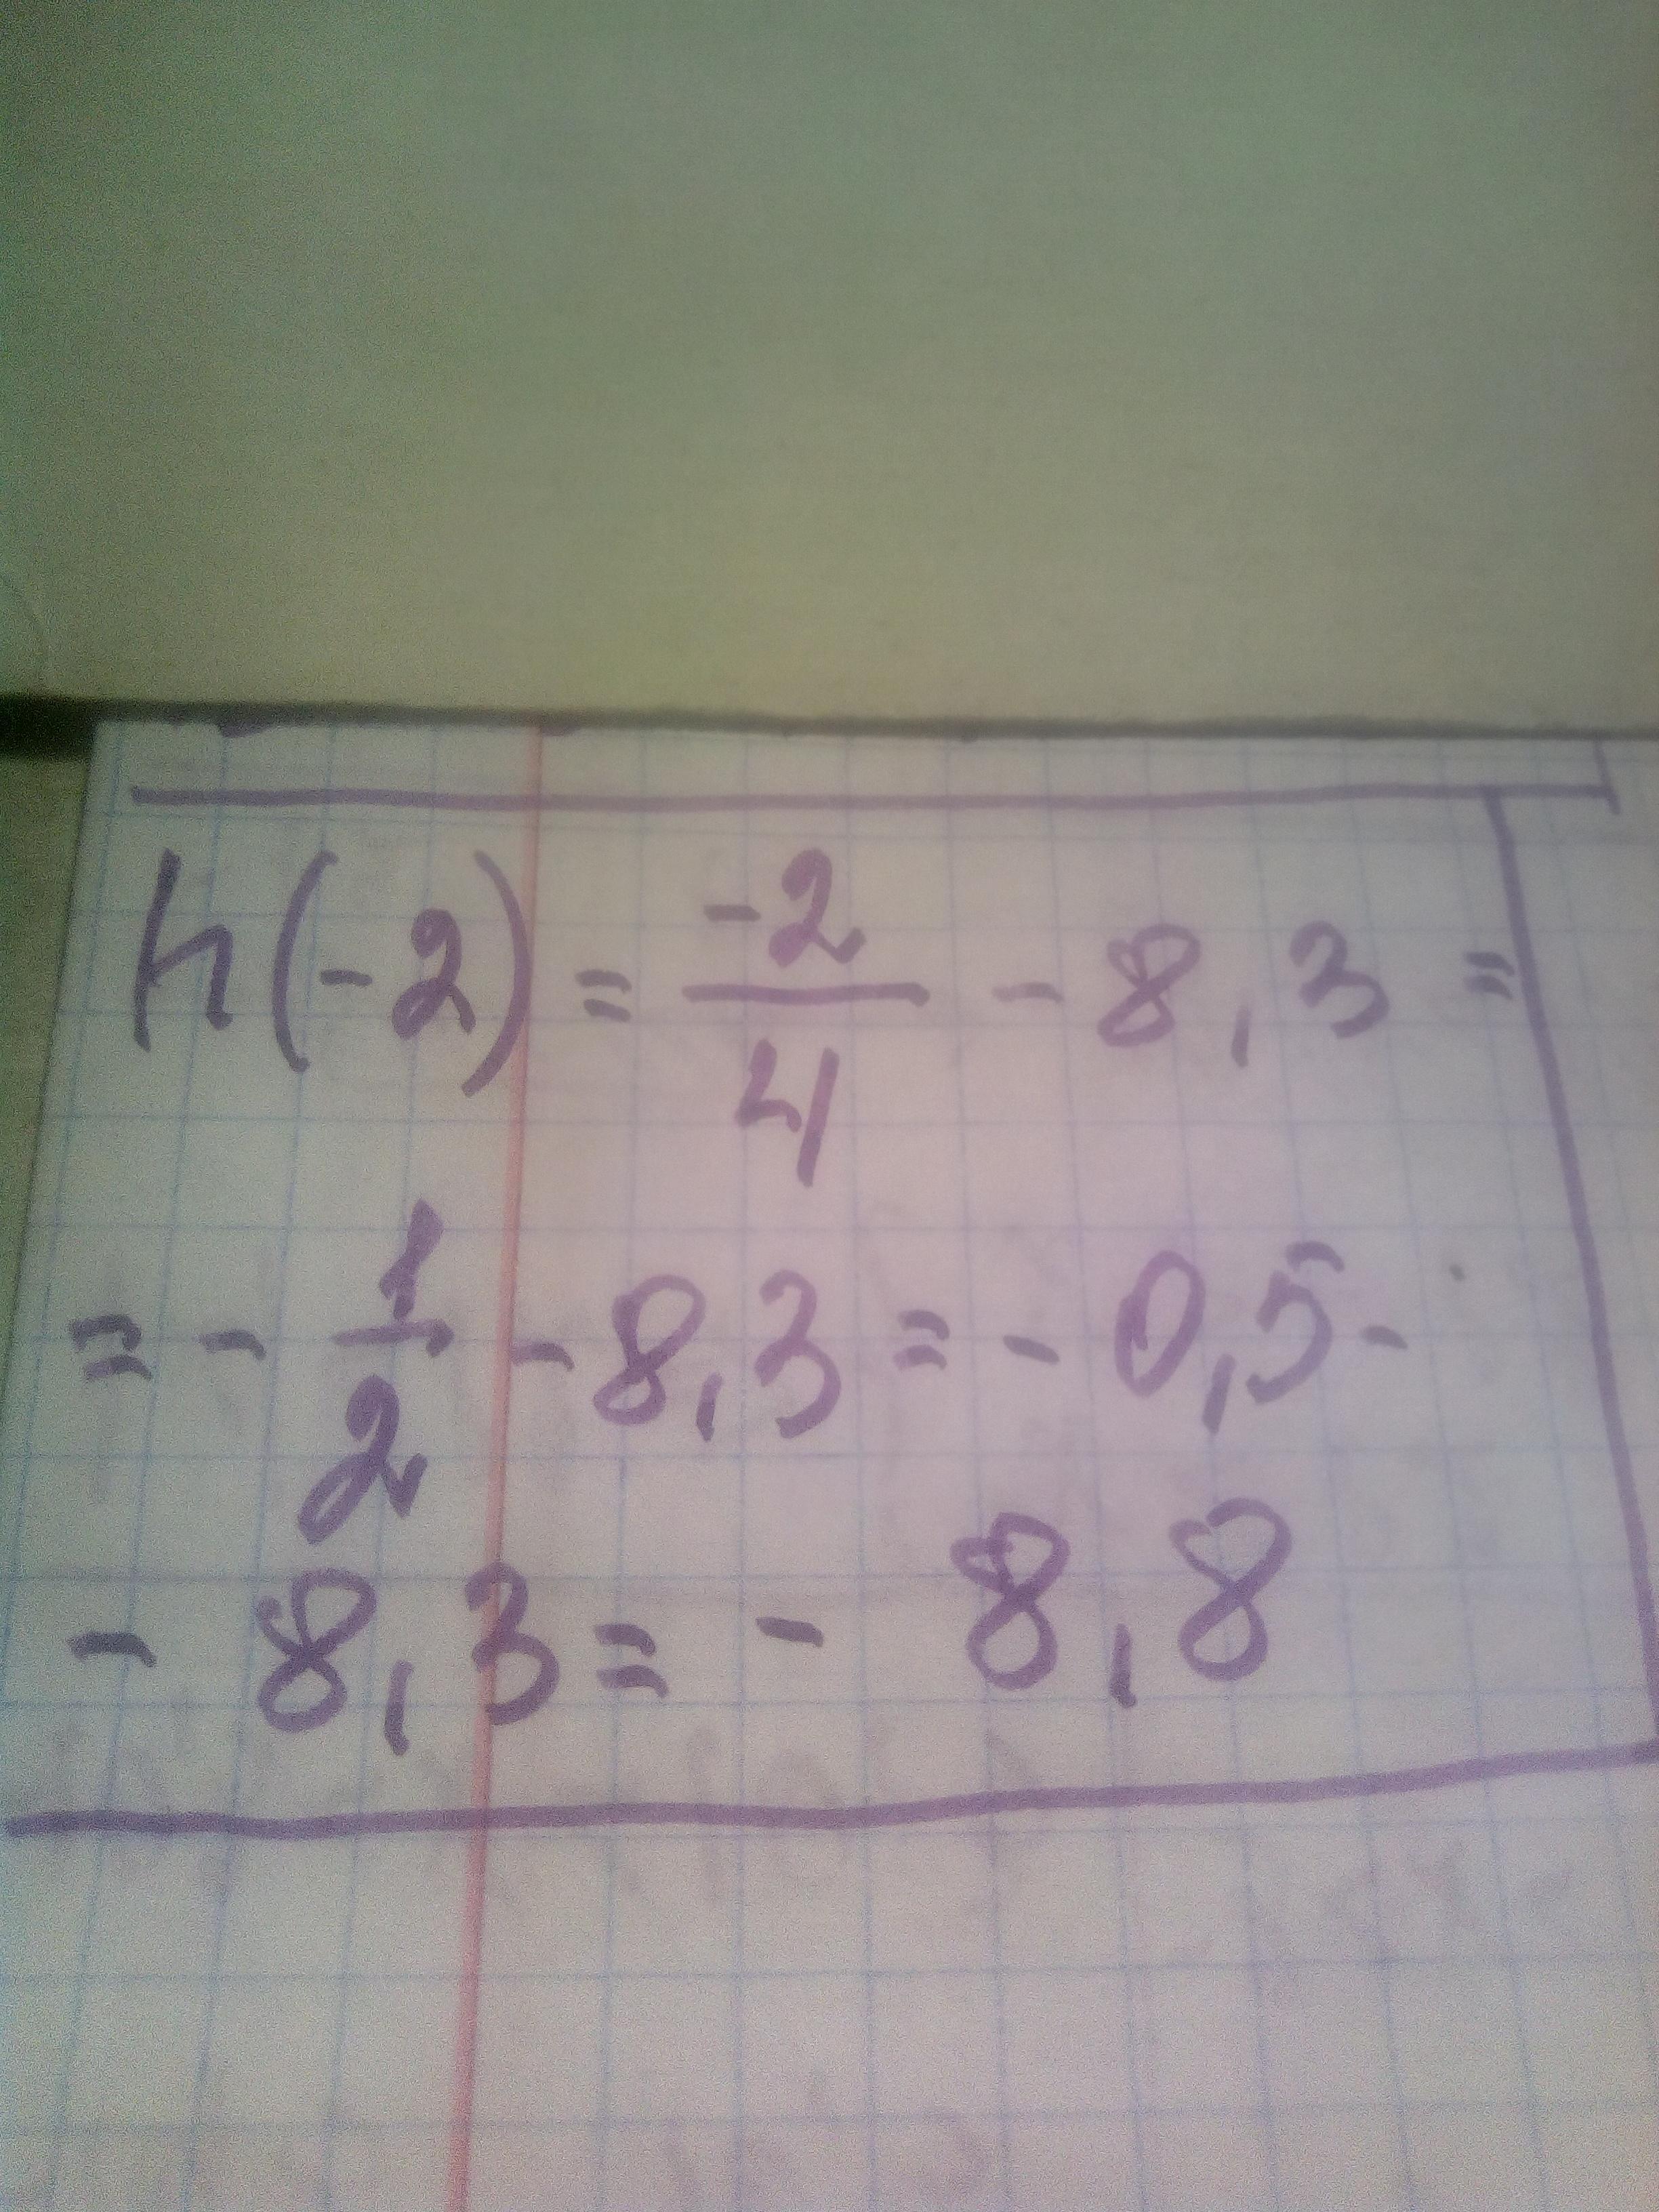 h(-2) = -2/4 - 8,3 =
= - 1/2 - 8,3 = - 0,5 -
- 8,3 = - 8,8